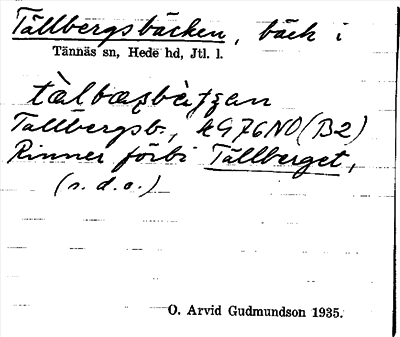 Tällbergsbäcken, bäck i
Tännäs sn, Hede hd, Jtl. l.
Tällbergsb., 4G76NO(B2)
Rinner förbi Tällberget,
(s. d. o.)
O. Arvid Gudmundson 1935.